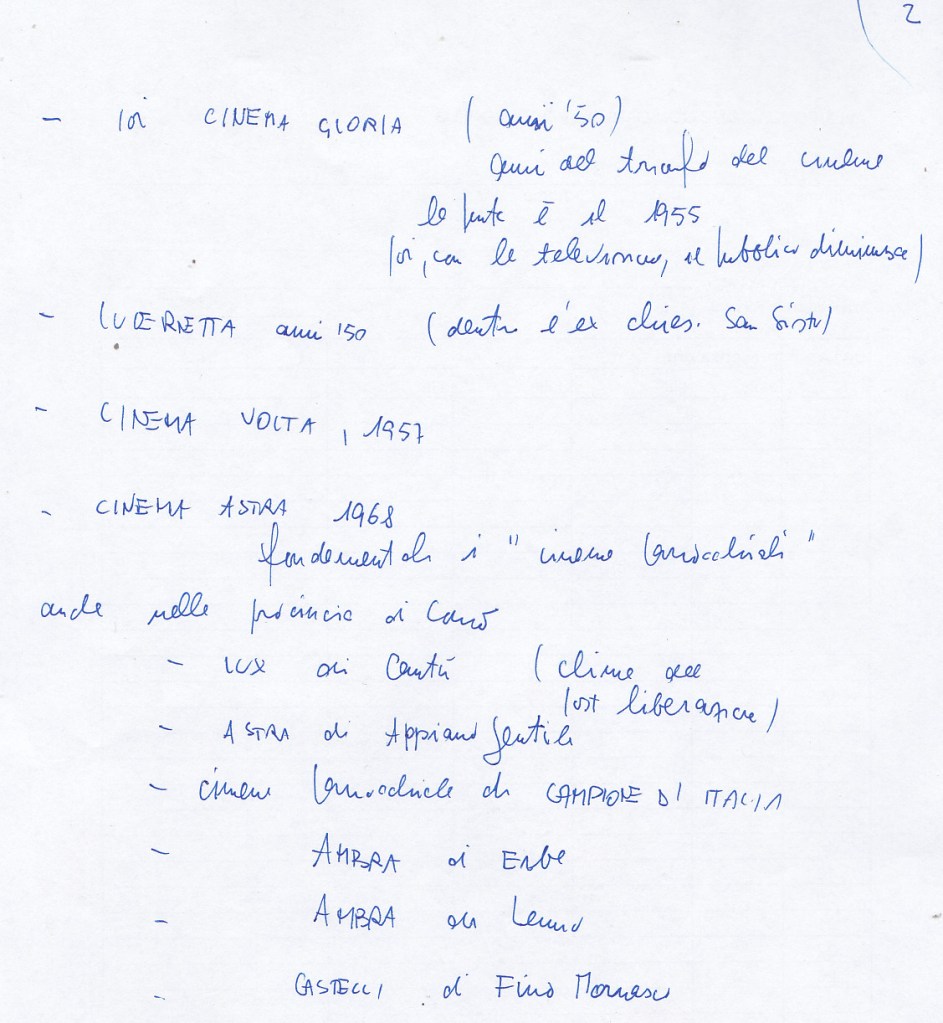 2
- poi CINEMA GLORIA (anni '50)
anni del trionfo del cinema
la punta è il 1955
poi, con la televisione, il pubblico diminuisce)
- LUCERNETTA anni '50 (dentro l'ex chies. San Sisto)
- CINEMA VOLTA, 1957
- CINEMA ASTRA 1968
fondamentali i "cinema parrocchiali"
anche nella provincia di Como
- LUX di Cantù (clima del
post liberazione)
- ASTRA di Appiano Gentile
- cinema parrocchiale di CAMPIONE D'ITALIA
- AMBRA di Erba
- AMBRA di Lenno
- CASTELLI di Fino Mornasco